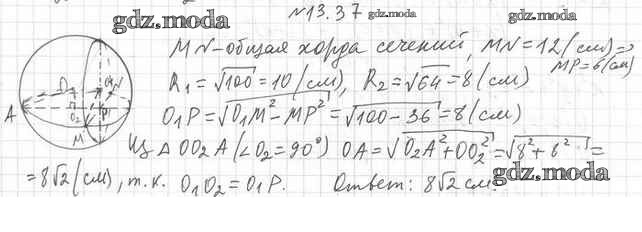 №13.37 gdz.moda
gdz.moda gdz.moda
MN-общая хорда сечений, MN=12(см)⇒
MP=6(см)
R₁=√100=10(см), R₂=√64=8(см)
O₁P=√O₁M²-MP²=√100-36=8(см)
Из △ OO₂A (∠O₂=90°) OA=√O₂A²+OO₂²=√8²+8²=
=8√2(см), т.к. O₁O₂=O₁P. Ответ: 8√2 см.
gdz.moda
A
M
N
P
O₂